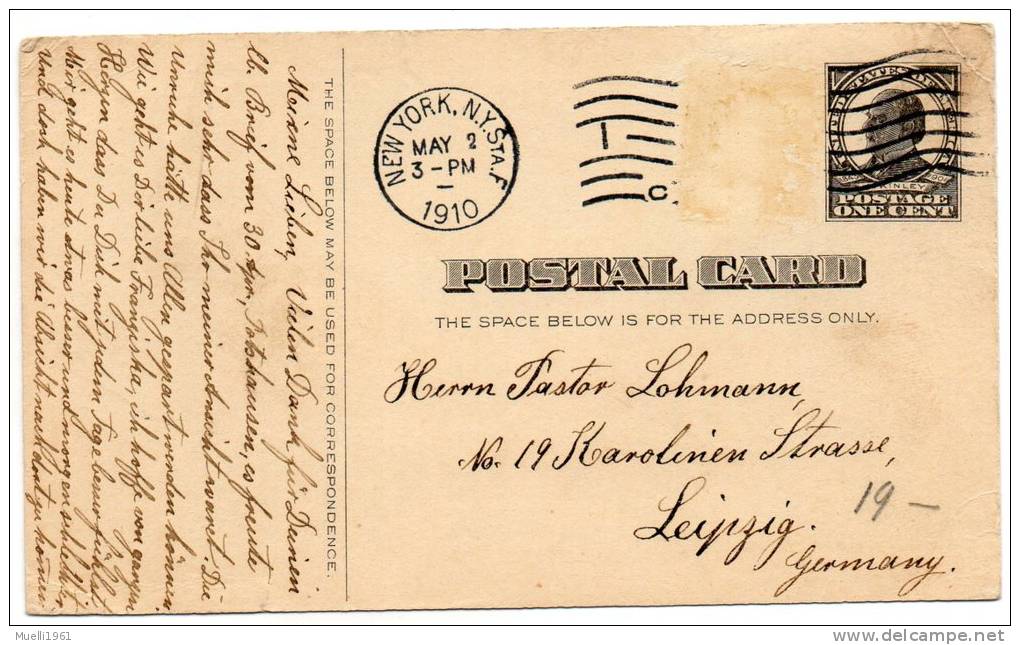 NEW YORK, N.Y. STA. F.
MAY 2
3-PM
1910
1
C
UNITED STATES OF AMERICA
McKINLEY
POSTAGE
ONE CENT
POSTAL CARD
THE SPACE BELOW IS FOR THE ADDRESS ONLY.
Herrn Pastor Lohmann,
No. 19 Karolinen Strasse,
Leipzig.
Germany.
19 —
THE SPACE BELOW MAY BE USED FOR CORRESPONDENCE.
Meine Lieben, Vielen Dank für Deinen
lb. Brief vom 30 von, es freute
mich sehr dass Ihr meiner Ansicht waret. Die
Unruhe hätte uns Allen gespart werden können
Wie geht's Dir liebe Franziska, ich hoffe von ganzem
Herzen dass Du Dich mit jedem Tage besser fühlst
Mir geht es heute etwas besser und morgen
und doch haben wir die Absicht nach dort zu kommen
Muelli1961
www.delcampe.net